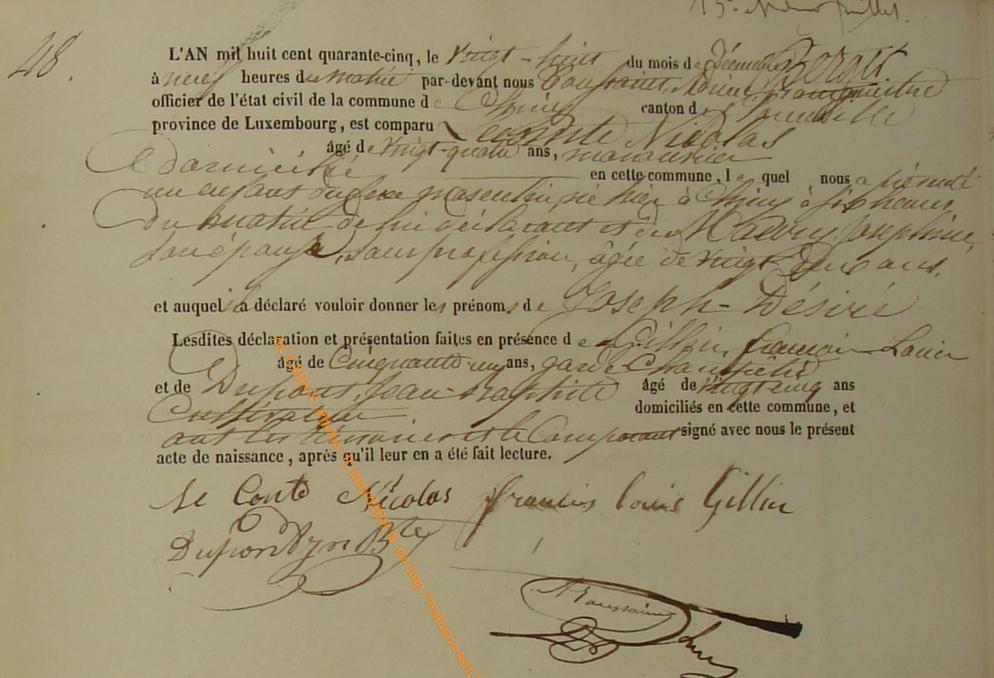 15e
48.
L'AN mil huit cent quarante-cinq, le vingt-huit du mois de Décembre
à neuf heures du matin par-devant nous Toussaint, Bourgmestre
officier de l'état civil de la commune de Chiny canton de
province de Luxembourg, est comparu Lecomte Nicolas
âgé de vingt-quatre ans, manœuvrier
domicilié en cette commune, lequel nous a présenté
un enfant du sexe masculin, né hier à Chiny à six heures
du matin de lui déclarant et de Joséphine,
son épouse, sans profession, âgée de vingt deux ans,
et auquel il a déclaré vouloir donner les prénoms de Joseph-Désiré
Lesdites déclaration et présentation faites en présence de Gillin, François-Louis
âgé de Cinquante un ans, garde
et de Dupont, Jean-Baptiste âgé de vingt cinq ans
Cultivateur domiciliés en cette commune, et
ont les témoins et le Comparant signé avec nous le présent
acte de naissance, après qu'il leur en a été fait lecture.
Le Conte Nicolas François Louis Gillin
Dupont Jn Bte
Toussaint